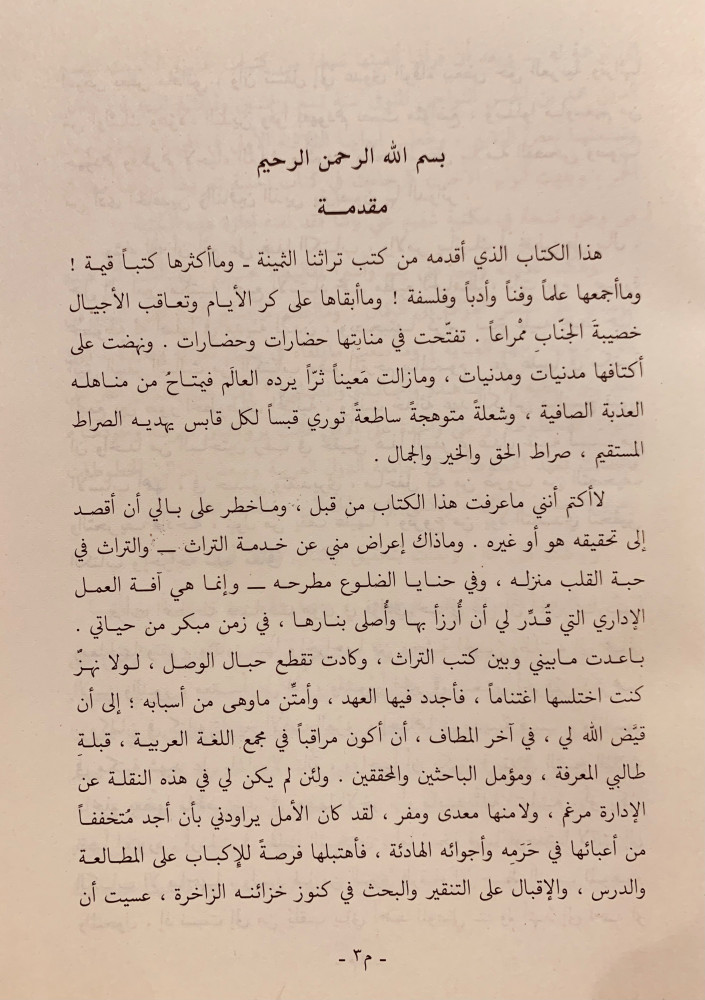 بسم الله الرحمن الرحيم
مقدمــة
هذا الكتاب الذي أقدمه من كتب تراثنا الثمينة ـ وماأكثرها كتبـاً قيمة !
وماأجمعها علماً وفناً وأدباً وفلسفة ! وماأبقاها على كر الأيـام وتعـاقب الأجيـال
خصيبةَ الجنَاب ممْراعاً . تفتّحت في منابتها حضارات وحضارات . ونهضت على
أكتافها مدنيات ومدنيات ، ومازالت مَعيناً ثرّاً يرده العالَم فيمتـاحُ من منـاهلـه
العذبة الصافية ، وشعلةً متوهجةً ساطعةً توري قبساً لكل قابس يهديـه الصراط
المستقيم ، صراط الحق والخير والجمال .
لاأكتم أنني ماعرفت هذا الكتاب من قبل ، ومـاخطر على بـالي أن أقصـد
إلى تحقيقه هو أو غيره . وماذاك إعراض مني عن خدمـة التراث ـــ والتراث في
حبة القلب منزلـه ، وفي حنايـا الضلـوع مطرحـه ـــ وإنمـا هي آفـة العمـل
الإداري التي قُـدِّر لي أن أُرزأ بهـا وأُصلى بنـارهـا ، في زمن مبكر من حيـاتي .
بـاعـدت مـابيني وبين كتب التراث ، وكادت تقطع حبـال الوصل ، لـولا نهـزٌ
كنت اختلسها اغتنامـاً ، فـأجدد فيهـا العهـد ، وأمتِّن مـاوهى من أسبـابـه ؛ إلى أن
قيَّض الله لي ، في آخر المطاف ، أن أكون مراقبـاً في مجمع اللغـة العربيـة ، قبلـةِ
طالبي المعرفة ، ومؤمل الباحثين والمحققين . ولئن لم يكن لي في هذه النقلـة عن
الإدارة مرغم ، ولامنها معدى ومفر ، لقد كان الأمل يراودني بأن أجد مُتخففـاً
من أعبائها في حَرَمِه وأجوائه الهادئة ، فـأهتبلهـا فرصـةً للإكبـاب على المطـالعـة
والدرس ، والإقبال على التنقير والبحث في كنوز خزائنـه الزاخرة ، عسيت أن
ـ م٣ ـ